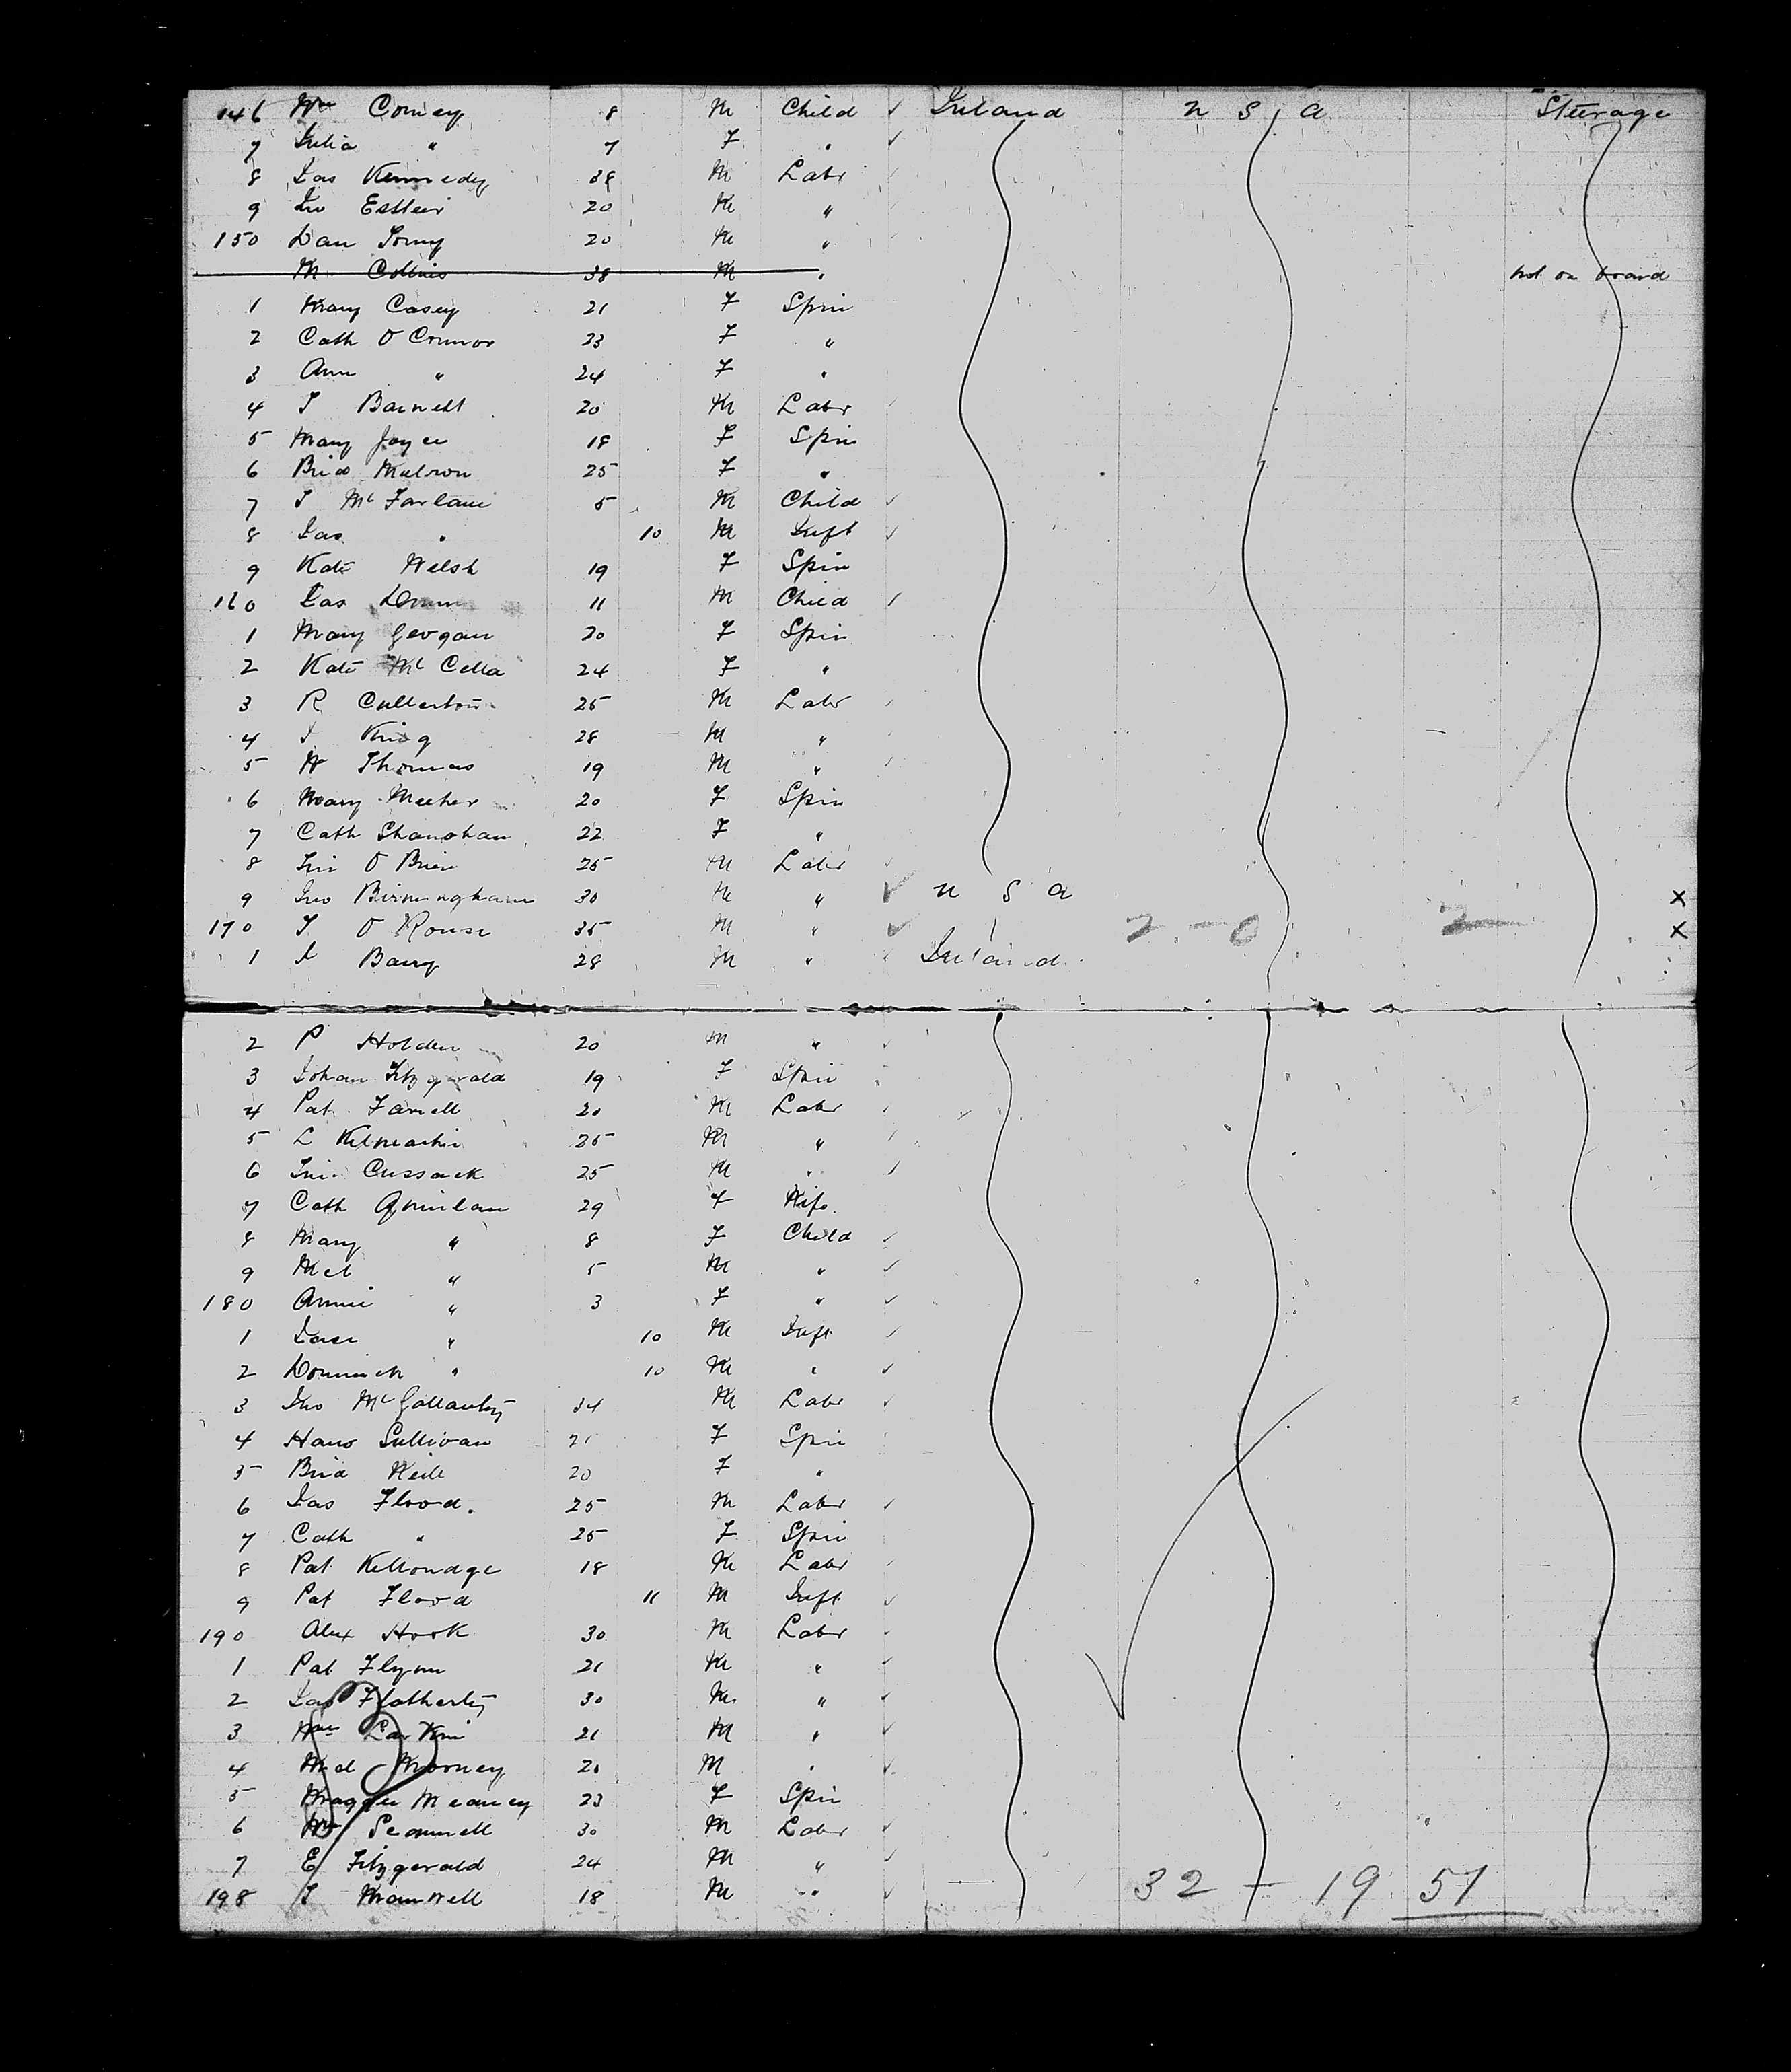 146 Wm Comey 8 M Child ✓ Ireland U S A Steerage
7 Julia " 7 F " ✓
8 Jas Kennedy 38 M Labr
9 Jno 20 M "
150 Dan 20 M "
M Collins 38 M " not on board
1 Mary Casey 21 F Spin
2 Cath O Connor 23 F "
3 Ann " 24 F "
4 J Barnett 20 M Labr
5 Mary Joyce 18 F Spin
6 Brid 25 F "
7 J Mc Farlane 5 M Child ✓
8 Jas " 10 M Inft ✓
9 Kate Welsh 19 F Spin
160 Jas 11 M Child
1 Mary Geogan 20 F Spin
2 Kate Mc Cella 24 F "
3 R Cullerton 25 M Labr
4 J King 28 M "
5 W Thomas 19 M "
6 Mary Meeher 20 F Spin
7 Cath Shanahan 22 F "
8 O Brien 25 M Labr
9 Jno Birmingham 30 M " ✓ U S A X
170 J O Rouse 35 M " ✓ 2 - 0 2 X
1 J Barry 28 M " Ireland
2 P Holden 20 M "
3 Johan Fitzgerald 19 F Spin
4 Pat Farrell 20 M Labr
5 L 25 M "
6 Cussack 25 M "
7 Cath Quinlan 29 F Wife
8 Mary " 8 F Child ✓
9 Mcl " 5 M " ✓
180 Annie " 3 F " ✓
1 " 10 M Inft
2 Dominick " 10 M " ✓
3 Jno Mc 34 M Labr ✓
4 Hano Sullivan 21 F Spin
5 Brid Neill 20 F "
6 Jas Flood. 25 M Labr ✓
7 Cath " 25 F Spin
8 Pat 18 M Labr
9 Pat Flood 11 M Inft ✓
190 Alex Hook 30 M Labr
1 Pat Flynn 21 M "
2 Jas Flatherty 30 M "
3 Wm Larkin 21 M "
4 Mooney 20 M "
5 Maggie Meaney 23 F Spin
6 Wm Scannell 30 M Labr ✓
7 E Fitzgerald 24 M "
198 J 18 M " 32 - 19 51